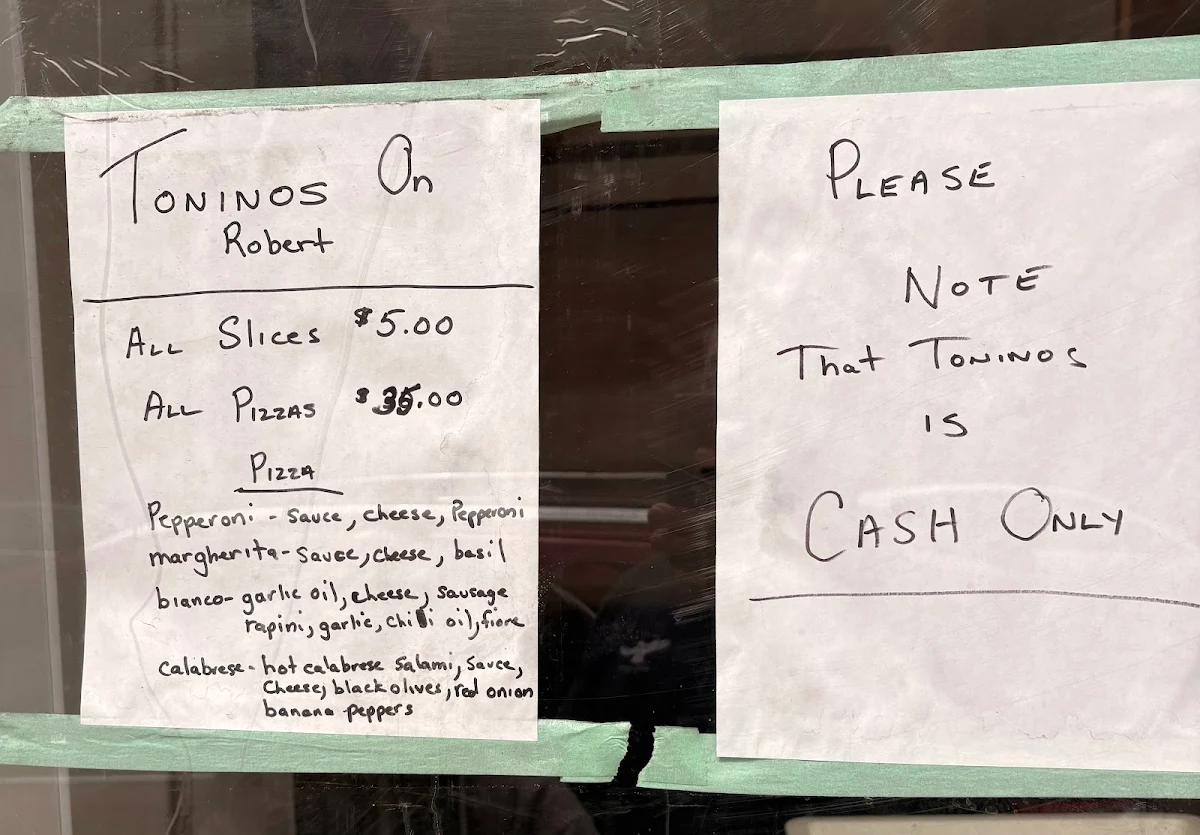 TONINOS On
Robert
ALL Slices $5.00
ALL PIZZAS $35.00
PIZZA
Pepperoni - Sauce, cheese, Pepperoni
margherita - Sauce, cheese, basil
bianco - garlic oil, cheese, sausage
rapini, garlic, chili oil, fiore
calabrese - hot calabrese salami, sauce,
cheese, black olives, red onion
banana peppers
PLEASE
NOTE
That TONINOS
IS
CASH ONLY